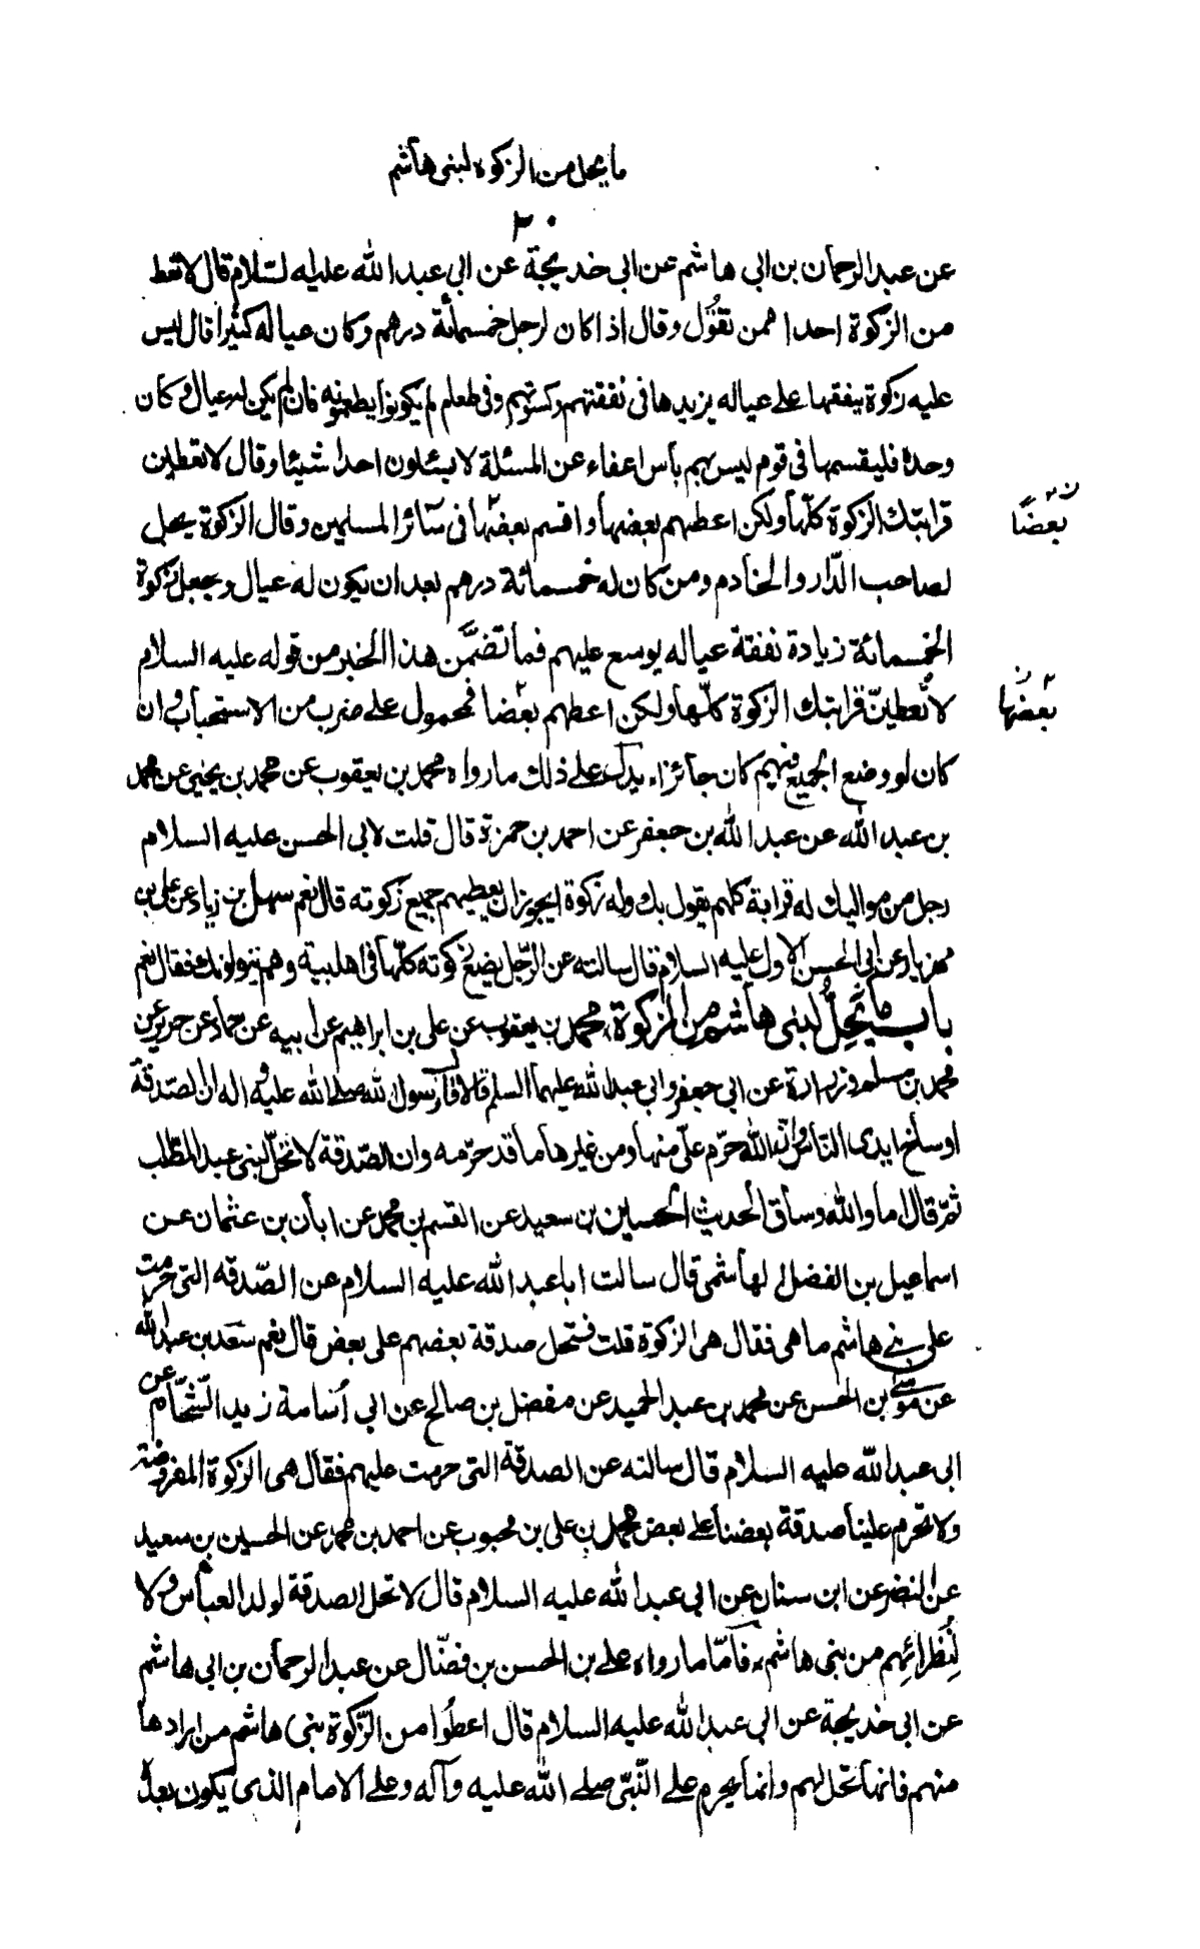 ما يحل من الزكوة لبنى هاشم
٢٠
عن عبد الرحمان بن ابى هاشم عن ابى خديجة عن ابى عبد الله عليه السلام قال لا تعط
من الزكوة احدا ممن تعول وقال اذا كان لرجل خمسمائة درهم وكان عياله كثيرا قال ليس
عليه زكوة ينفقها على عياله يزيدها فى نفقتهم وكسوتهم وفى طعام لم يكونوا يطعمونه فان لم يكن له عيال وكان
وحده فليقسمها فى قوم ليس بهم بأس اعفاء عن المسئلة لا يسئلون احدا شيئا وقال لا تعطين
قرابتك الزكوة كلّها ولكن اعطهم بعضها واقسم بعضها فى سائر المسلمين وقال الزكوة يحل
بعضًا
لصاحب الدّار والخادم ومن كان له خمسمائة درهم بعد ان يكون له عيال ويجعل زكوة
الخمسمائة زيادة نفقة عياله يوسع عليهم فما تضمَّن هذا الخبر من قوله عليه السلام
لا تُعطينّ قرابتك الزكوة كلّها ولكن اعطهم بعضا فمحمول على ضرب من الاستحباب وان
بعضها
كان لو وضع الجميع فيهم كان جائزاء يدل على ذلك ما رواه محمد بن يعقوب عن محمد بن يحيى عن محمد
بن عبد الله عن عبد الله بن جعفر عن احمد بن حمزة قال قلت لابى الحسن عليه السلام
رجل من مواليك له قرابة كلهم يقول بك وله زكوة ايجوز ان يعطيهم جميع زكوته قال نعم سهل بن زياد عن على بن
مهزيار عن ابى الحسن الاول عليه السلام قال سالته عن الرّجل يضع زكوته كلّها فى اهل بيته وهم يتولونك فقال نعم
باب ما تحلُّ لبنى هاشم من الزكوة، محمد بن يعقوب عن على بن ابراهيم عن ابيه عن حماد عن حريز عن
محمد بن مسلم وزرارة عن ابى جعفر وابى عبد الله عليهما السلم قالا قال رسول الله صلى الله عليه واله ان الصّدقة
اوساخ ايدى النّاس وانّ الله حرّم علىّ منها ومن غيرها ما قد حرّمه وان الصّدقة لا تحلّ لبنى عبد المطّلب
ثمّ قال اما والله وساق الحديث الحسين بن سعيد عن القسم بن محمد عن ابان بن عثمان عن
اسماعيل بن الفضل الهاشمى قال سالت ابا عبد الله عليه السلام عن الصّدقه التى حرمت
على بنى هاشم ما هى فقال هى الزكوة قلت فتحل صدقة بعضهم على بعض قال نعم سعد بن عبد الله
عن موسى بن الحسن عن محمد بن عبد الحميد عن مفضل بن صالح عن ابى اُسامة زيد الشّحّام عن
ابى عبد الله عليه السلام قال سالته عن الصدقة التى حرمت عليهم فقال هى الزكوة المفروضة
ولا تحرم علينا صدقة بعضنا على بعض محمد بن على بن محبوب عن احمد بن محمد عن الحسين بن سعيد
عن النضر عن ابن سنان عن ابى عبد الله عليه السلام قال لا تحل الصدقة لولد العباس ولا
لِنُظرائِهم من بنى هاشم، فامّا ما رواه على بن الحسن بن فضّال عن عبد الرحمان بن ابى هاشم
عن ابى خديجة عن ابى عبد الله عليه السلام قال اعطُوا من الزّكوة بنى هاشم من ارادها
منهم فانها تحل لهم وانما يحرم على النّبىّ صلى الله عليه وآله وعلى الامام الذى يكون بعده